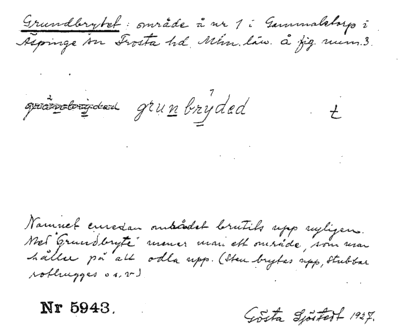 Grundbrytet: område å nr 1 i Gammalstorp i
Äspinge sn Frosta hd. Mlm. län. å fig. num. 3.
grunbryded t
Namnet emedan området brutits upp nyligen.
Med "Grundbryte" menar man ett område, som man
håller på att odla upp. (Sten brytes upp, stubbar
rothugges o. s. v.)
Nr 5943. Gösta Sjöstedt 1927.